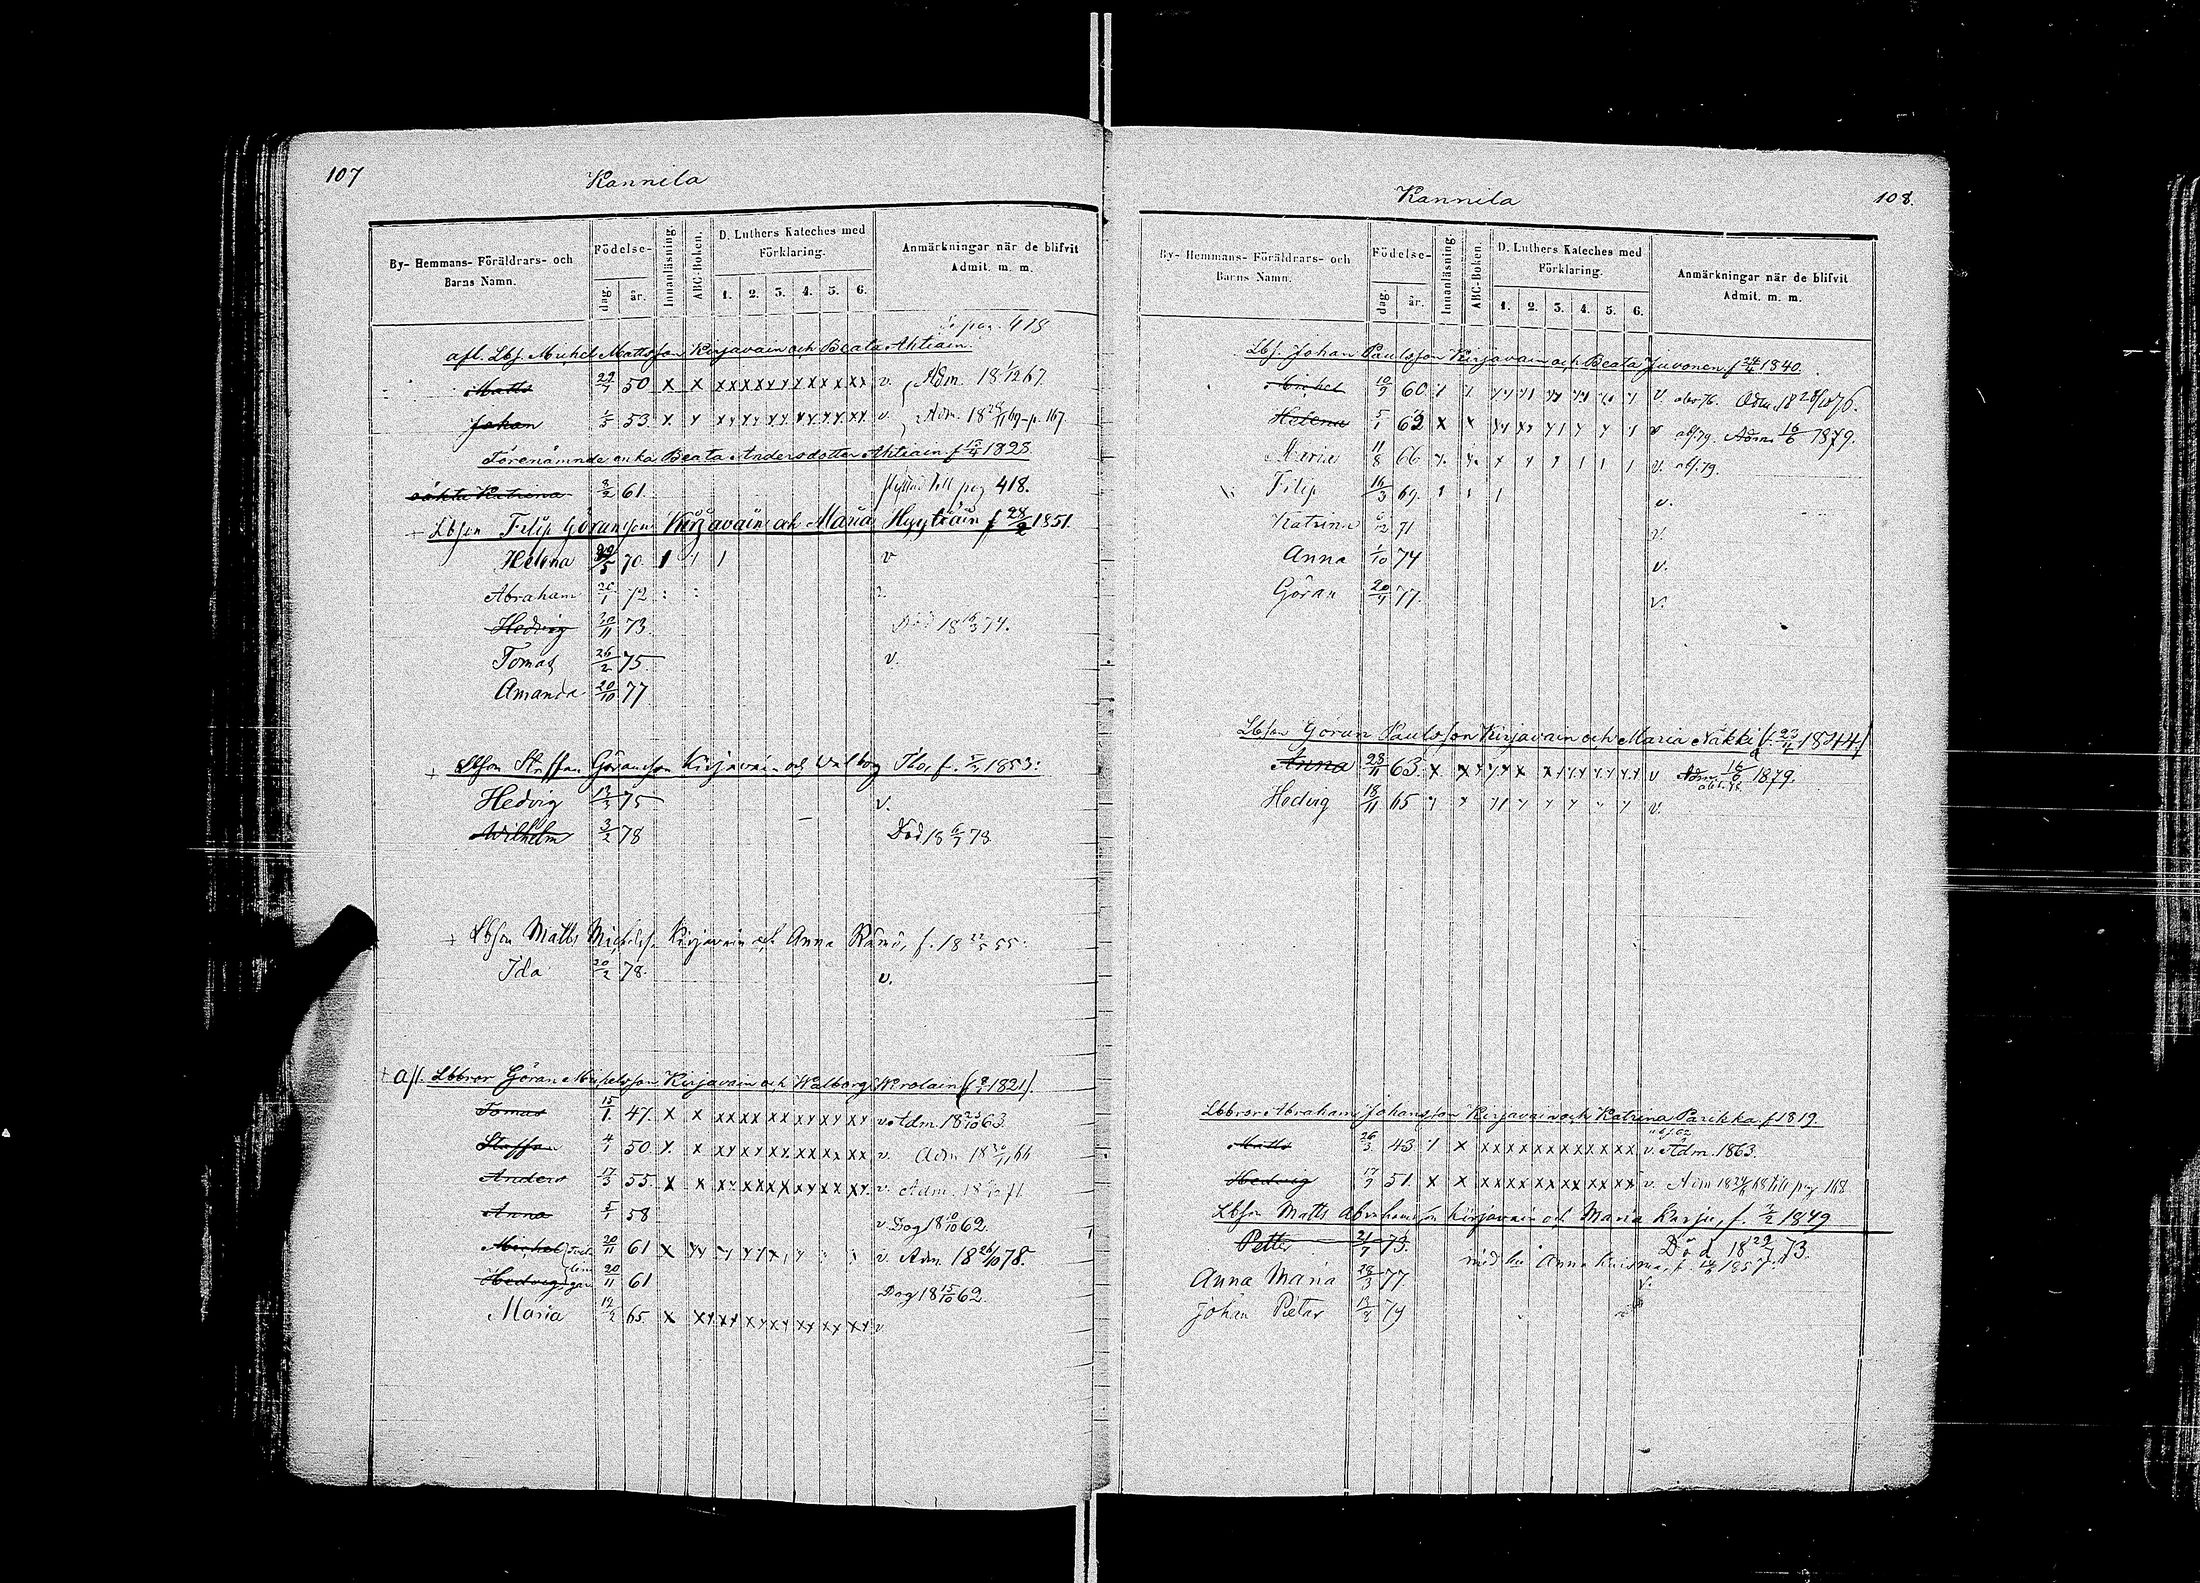 107
Kannila
By- Hemmans- Föräldrars- och Barns Namn.
Födelse-
dag.
år.
Innanläsning.
ABC-Boken.
D. Luthers Kateches med Förklaring.
1. 2. 3. 4. 5. 6.
Anmärkningar när de blifvit Admit. m. m.
pag. 418
afl. Lbs. Michel Mattsson Kirjavain och Beata Ahtiain
Matts 29/7 50 x x xx xx xx xx xx xx v. Adm. 18 67.
Johan 1/5 53 x x v. Adm. 18 69 p. 167.
Förenämnde enka Beata Andersdotter Ahtiain f 1828
oäkta Katrina 8/2 61. flyttad till pag 418.
+ Lbson Filip Göransson Kirjavain och Maria Hyytiäin f 28/2 1851.
Helena 70. v
Abraham 26/1 72
Hedvig 20/11 73. Död 18 16/3 74.
Tomas 26/2 75. v.
Amanda 20/10 77
+ Steffan Göransson Kirjavain och Valborg Ilo, f. 1853.
Hedvig 13/3 75 v.
Wilhelm 3/2 78 Död 18 6/7 78
+ Lbson Matts Michelss. Kirjavain och Anna Rämö, f. 18 22/5 55.
Ida 20/2 78. v.
+ Afl. Lbbror Göran Michelsson Kirjavain och Walborg Wirolain (f 1821).
Tomas 15/1 47. x x xx xx xx xx xx xx v. Adm. 18 63.
Steffan 4/1 50. x x xx xx xx xx xx xx v. Adm 18 66
Anders 17/3 55. x x xx xx xx xx xx xx v. Adm. 18 71
Anna 5/1 58 v. Dog 18 10/10 62.
Michel 20/11 61 v. Adm. 18 26/10 78.
Hedvig 20/11 61 Dog 18 15/10 62.
Maria 65. x xx xx xx xx xx xx v.
Kannila
108.
By- Hemmans- Föräldrars- och Barns Namn.
Födelse-
dag
år.
Innanläsning.
ABC-Boken.
D. Luthers Kateches med Förklaring.
1. 2. 3. 4. 5. 6.
Anmärkningar när de blifvit Admit. m. m.
Lbs. Johan Paulsson Kirjavain och Beata Juvonen f 24/4 1840.
Michel 10/9 60. v. Adm. 18 28/10 76.
Helena 5/1 62 x x v abs. 79. Adm. 16/6 1879.
Maria 11/8 66 v. abs. 79.
Filip 16/3 69. v.
Katrina 71 v.
Anna 1/10 74 v.
Göran 77. v.
Lbson Göran Paulsson Kirjavain och Maria Näkki (f. 23/4 1844)
Anna 28/11 63. x v Adm. 16/6 1879.
Hedvig 18/11 65 v.
Lbbror Abraham Johansson Kirjavain och Katrina Parikka f 1819.
Matts 26/3 43. x xx xx xx xx xx xx v. Adm. 1863.
Hedvig 17/7 51. x x xx xx xx xx xx xx v. Adm 18 68 till pag 168
Lbson Matts Abrahamsson Kirjavain och Maria Karju, f. 1849
Petter 21/7 73. Död 18 29/7 73.
med hu Anna f. 1857.
Anna Maria 28/3 77 v.
Johan Pietar 79